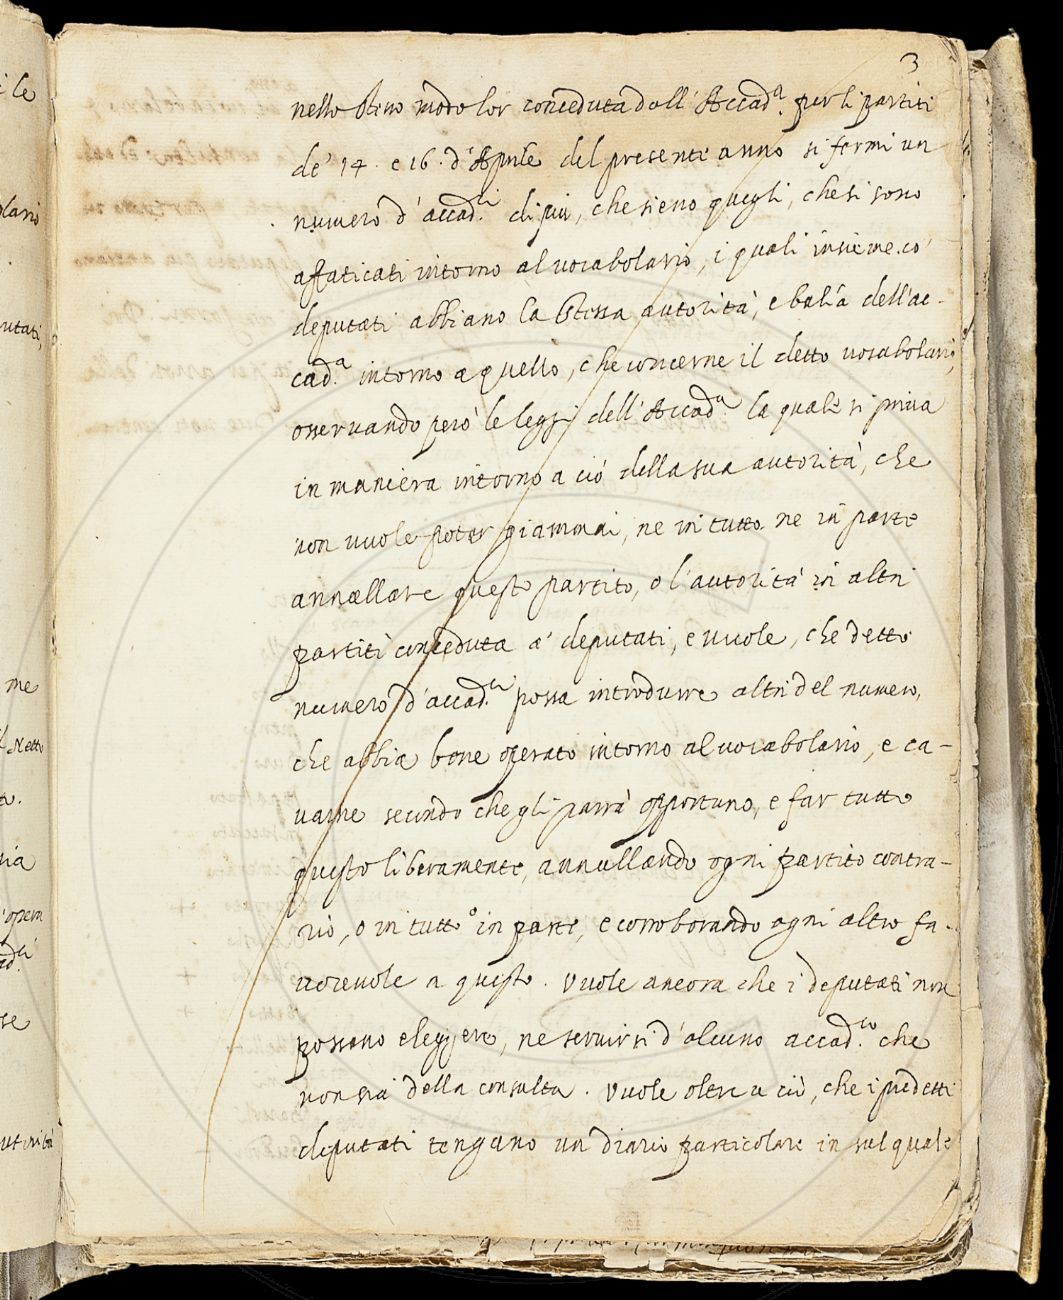 3
nello stesso modo lor conceduta dall'Accad.a per li partiti
de' 14. e 16. d'Aprile del presente anno si fermi un
numero d'accad.ci di più, che sieno quegli, che si sono
affaticati intorno al vocabolario, i quali insieme co'
deputati abbiano la stessa autorità, e balìa dell'ac-
cad.a intorno a quello, che concerne il detto vocabolario,
osservando però le leggi dell'Accad.a la quale si priva
in maniera intorno a ciò della sua autorità, che
non vuole poter giammai, ne in tutto ne in parte
annullare questo partito, o l'autorità in altri
partiti conceduta a' deputati, e vuole, che detto
numero d'accad.ci possa introdurre altri del numero,
che abbia bene operato intorno al vocabolario, e ca-
varne secondo che gli parrà opportuno, e far tutto
questo liberamente, annullando ogni partito contra-
rio, o in tutto o in parte, e corroborando ogni altro fa-
vorevole a questo. Vuole ancora che i deputati non
possano eleggere, ne servirsi d'alcuno accad.co che
non sia della consulta. Vuole oltre a ciò, che i predetti
deputati tengano un diario particolare in sul quale